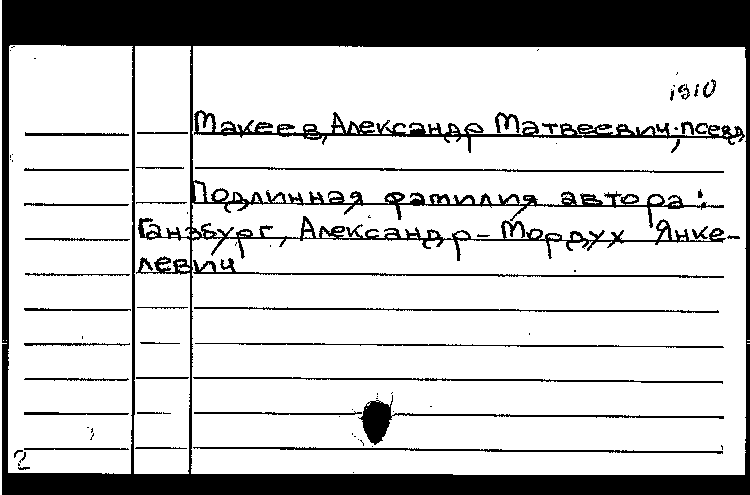 1910
Макеев, Александр Матвеевич; псевд
Подлинная фамилия автора:
Ганзбург, Александр-Мордух Янке-
левич
2